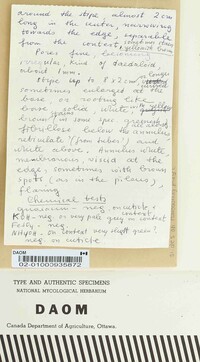 around the stipe almost 2 cm
long in the outer, narrowing
towards the edge, separable
from the context
Pores fine, becoming
irregular, kind of daedaloid
about 1 mm.
Stipe up to 8 x 2 cm,
sometimes enlarged at the
base, or rooting like
above, solid, white
brown
fibrillose below the annulus
reticulate (from tubes) and
white above. Annulus white
membranous, viscid at the
edge, sometimes with brown
spots (as in the pileus),
flaring
Chemical tests
guaiacum - neg. on cuticle &
context
KOH - neg. or very pale grey on context
FeSO4 - neg.
NH4OH - on context very slight green!
neg. on cuticle
DAOM
02-01000935872
TYPE AND AUTHENTIC SPECIMENS
NATIONAL MYCOLOGICAL HERBARIUM
DAOM
Canada Department of Agriculture, Ottawa.